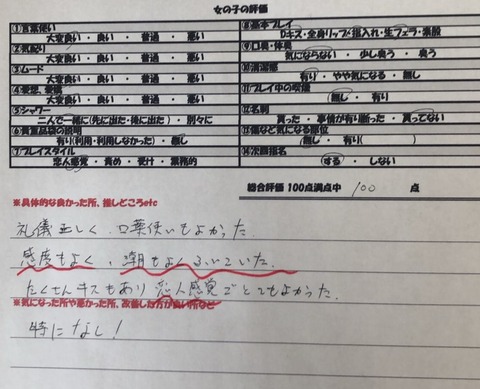 女の子の評価
①言葉使い
大変良い・良い・普通・悪い
②気配り
大変良い・良い・普通・悪い
③ムード
大変良い・良い・普通・悪い
④愛想、愛嬌
大変良い・良い・普通・悪い
⑤シャワー
二人で一緒に(先に出た・後に出た)・別々に
⑥貴重品袋の説明
有り(利用・利用しなかった)・無し
⑦プレイスタイル
恋人感覚・責め・受け・業務的
⑧基本プレイ
Dキス・全身リップ・指入れ・生フェラ・素股
⑨口臭・体臭
気にならない・少し臭う・臭う
⑩清潔感
有り・やや気になる・無し
⑪プレイ中の喫煙
無し・有り
⑫名刺
貰った・事情が有り断った・貰ってない
⑬傷など気になる部位
無し・有り( )
⑭次回指名
する・しない
総合評価 100点満点中 100 点
※具体的な良かった所、推しどころetc
礼儀正しく、口葉使いもよかった
感度もよく、潮もよくふいていた。
たくさんキスもあり恋人感覚でとてもよかった。
※気になった所や悪かった所、改善した方が良い所など
特になし!